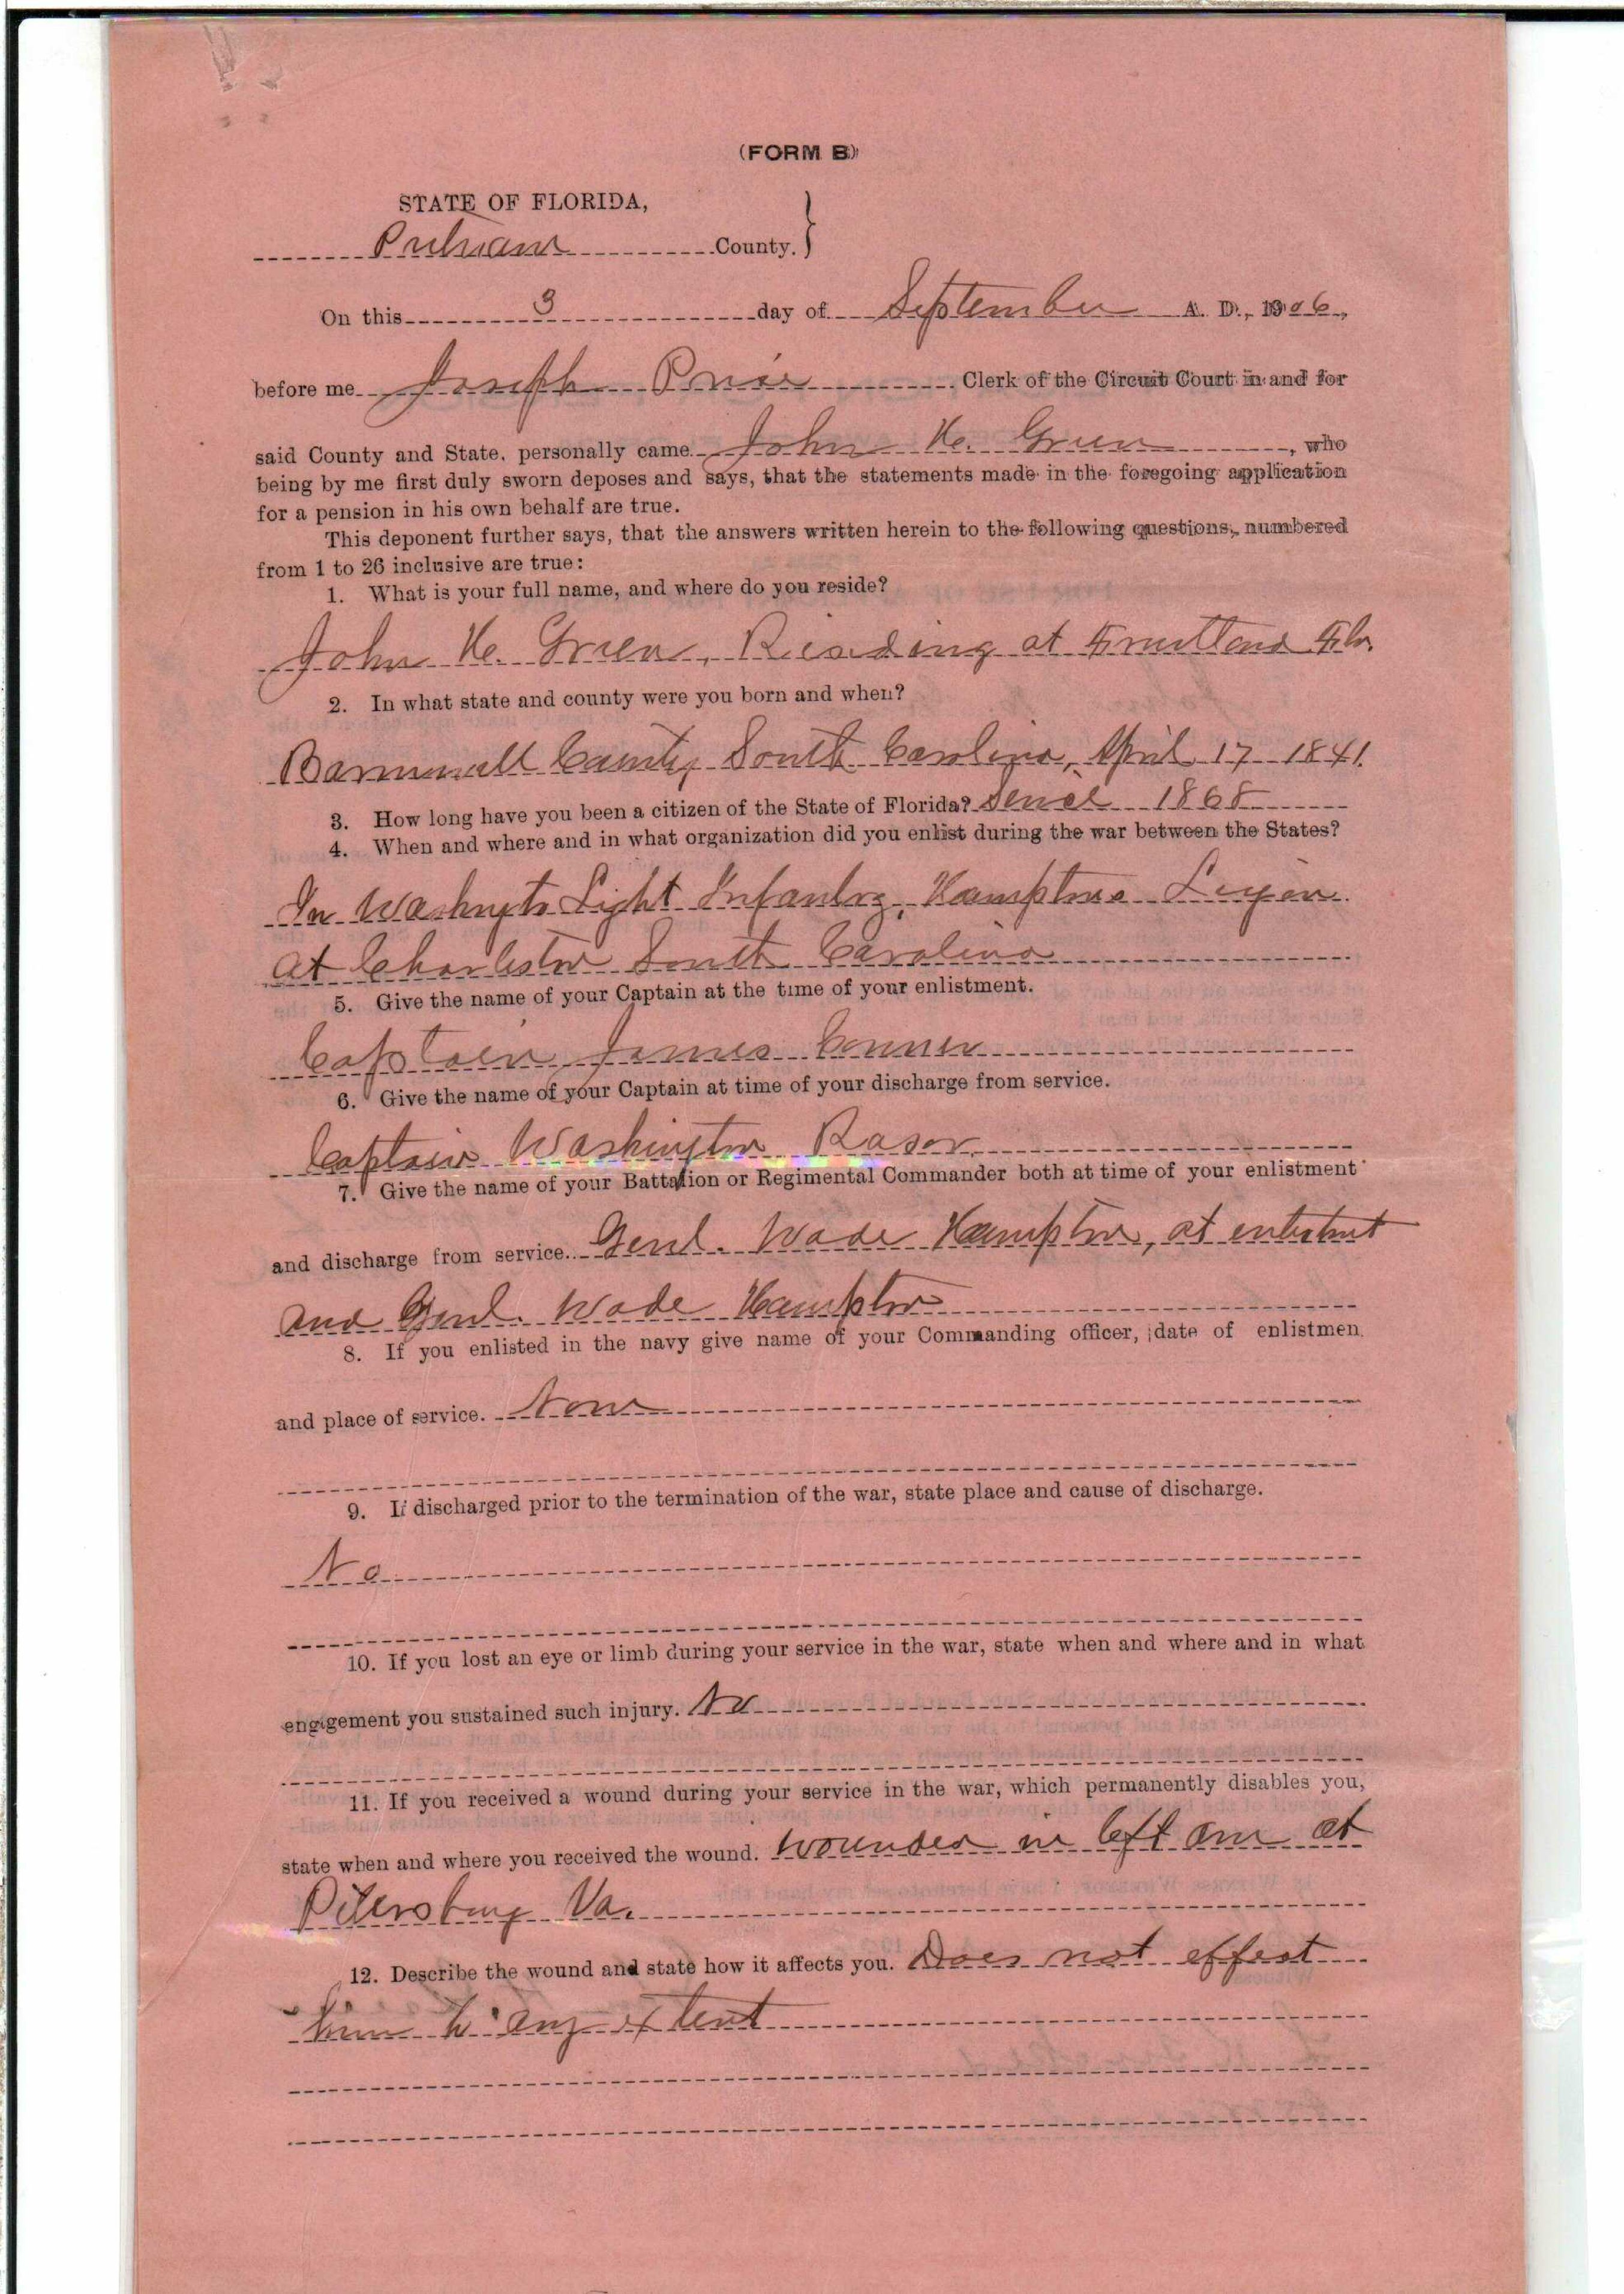 (FORM B)
STATE OF FLORIDA,
Putnam County.
On this 3 day of September A. D., 1906,
before me Joseph Price Clerk of the Circuit Court in and for
said County and State, personally came John H. Green, who
being by me first duly sworn deposes and says, that the statements made in the foregoing application
for a pension in his own behalf are true.
This deponent further says, that the answers written herein to the following questions, numbered
from 1 to 26 inclusive are true:
1. What is your full name, and where do you reside?
John H. Green, Risiding at Fruitland Fla.
2. In what state and county were you born and when?
Barnwell County, South Carolina, April 17 1841.
3. How long have you been a citizen of the State of Florida? Since 1868
4. When and where and in what organization did you enlist during the war between the States?
In Washington Light Infantry, Hamptons Legion
at Charleston South Carolina
5. Give the name of your Captain at the time of your enlistment.
Captain James Conner
6. Give the name of your Captain at time of your discharge from service.
Captain Washington Rasor
7. Give the name of your Battalion or Regimental Commander both at time of your enlistment
and discharge from service. Genl. Wade Hampton, at enlistment
and Genl. Wade Hampton
8. If you enlisted in the navy give name of your Commanding officer, date of enlistmen
and place of service. None
9. If discharged prior to the termination of the war, state place and cause of discharge.
No
10. If you lost an eye or limb during your service in the war, state when and where and in what
engagement you sustained such injury. No
11. If you received a wound during your service in the war, which permanently disables you,
state when and where you received the wound. Wounded in left arm at
Petersburg Va.
12. Describe the wound and state how it affects you. Does not effect
him to any extent